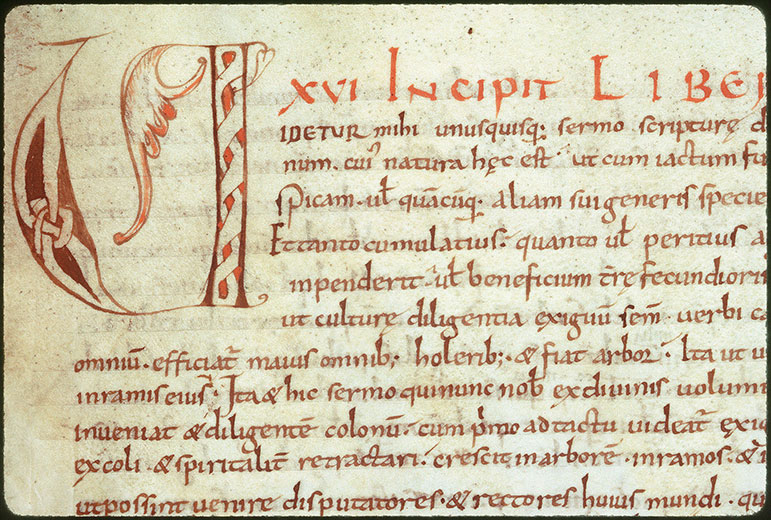 XVI INCIPIT LIBER
VIDETUR mihi unusquisq; sermo scripturę d
num. cui' natura hęc est. ut cum iactum fu
spicam. ul quācūq; aliam sui generis specie
Et tanto cumulatius. quanto ul peritius a
inpenderit. ul beneficium tre fecundioris
ut culture diligentia exiguū sem̄. uerbi ca
omniū. efficiat maius omnib; holerib; & fiat arbor. Ita ut u
in ramis eius. Ita & hic sermo qui nunc nob ex diuinis uolumi
inueniat & diligentē colonū. cum p̄mo ad tactu uideat exig
excoli. & spiritalit retractari. crescit in arborē. in ramos. &
ut possint uenire disputatores. & rectores huius mundi. qu